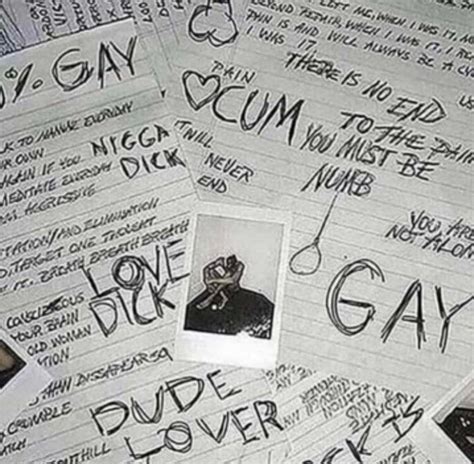 LEFT ME, WHEN I WAS 17, A
BEYOND REPAIR, WHEN I WAS 17, I RE
PAIN IS AND WILL ALWAYS BE A C
I WAS 17.
THERE IS NO END
TO THE PAIN
YOU MUST BE
NUMB
YOU ARE
NOT ALON
GAY
PAIN
CUM
T WILL
NEVER
END
% GAY
K TO MANAGE EVERYDAY
R OWN
AGAIN IF YOU
MEDITATE EVERYDAY
AGGRESSIVE
NIGGA
DICK
TATION/AND ELIMINATION
D. TARGET ONE THOUGHT
IT. BREATH BREATH BREATH
CONSCIOUS
YOUR BRAIN
OLD WOMAN
TION
LOVE
DICK
THAN DISSAPEARS
CRUMBLE
DUDE
LOVER
CK IS